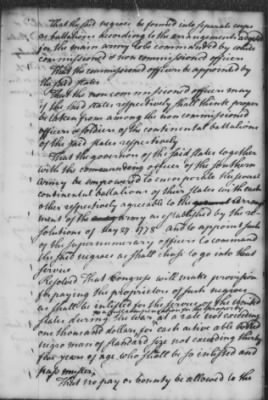 That the said negroes be formed into separate corps
as battalions according to the arrangements adopted
for the main army to be commanded by white
commissioned & non commissioned officers
That the commissioned officers be appointed by
the said states
That the non commissioned officers may
if the said states respectively shall think proper
be taken from among the non commissioned
officers & soldiers of the continental battalions
of the said states respectively
That the governors of the said states together
with the commanding officer of the southern
army be empowered to incorporate the several
continental battalions of their States with each
other respectively agreeable to the arrange
ment of the army as established by the re
solutions of May 27 1778 and to appoint such
of the supernumerary officers to command
the said negroes as shall chuse to go into that
service
Resolved That Congress will make provision
for paying the proprietors of such negroes
as shall be inlisted for the service of the United
States during the war, a full compensation for the property
at a rate not exceeding
one thousand dollars for each active able bodied
negro man of standard size not exceeding thirty
five years of age who shall be so inlisted and
pass muster
That no pay or bounty be allowed to the